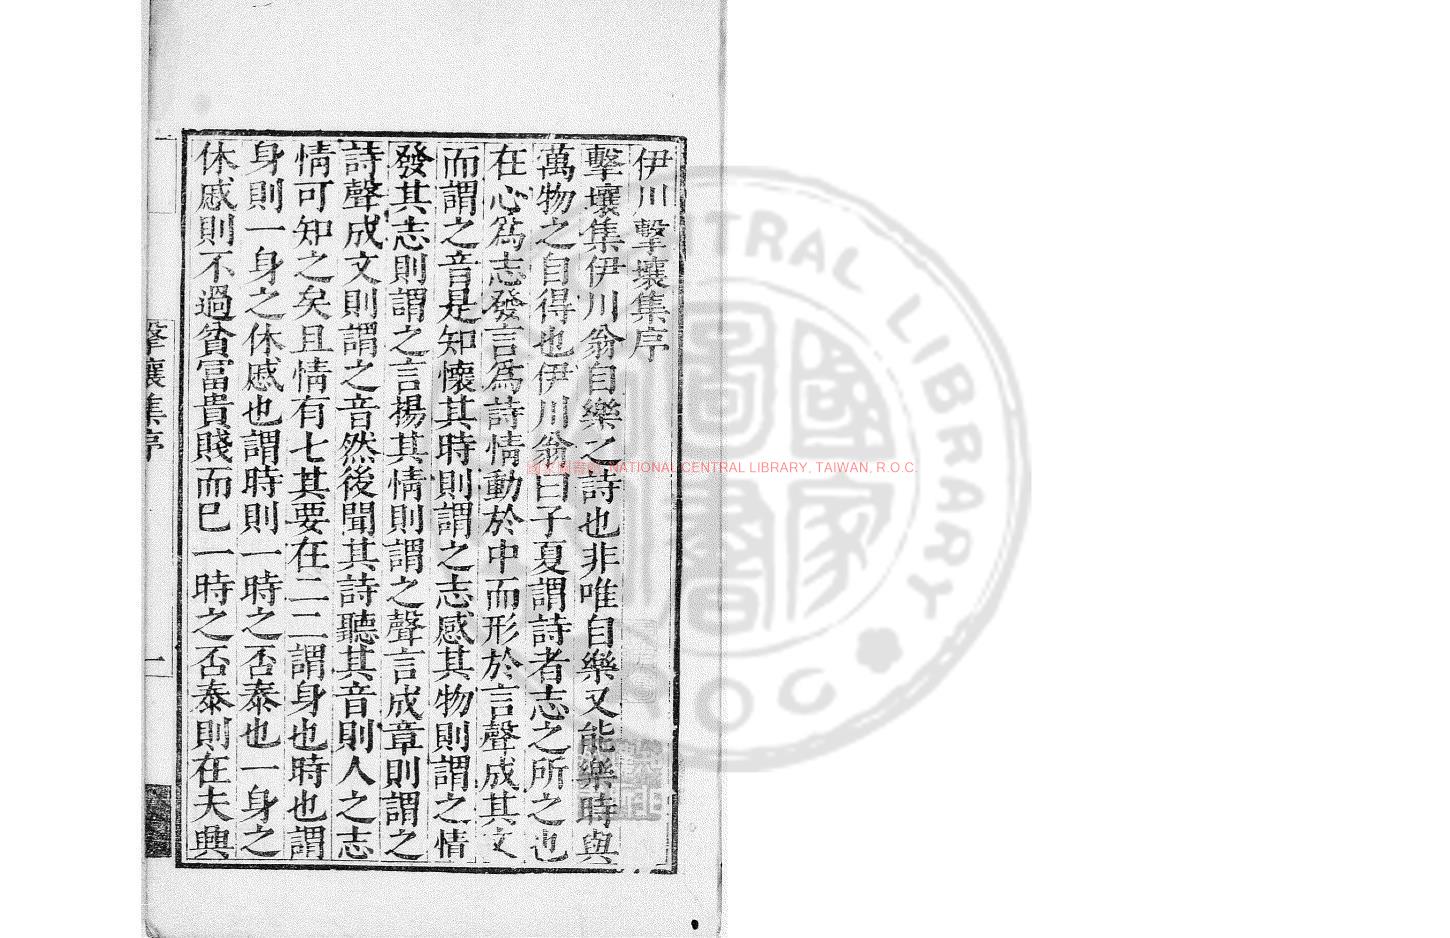 伊川擊壤集序
擊壤集伊川翁自樂之詩也非唯自樂又能樂時與
萬物之自得也伊川翁曰子夏謂詩者志之所之也
在心爲志發言爲詩情動於中而形於言聲成其文
而謂之音是知懷其時則謂之志感其物則謂之情
發其志則謂之言揚其情則謂之聲言成章則謂之
詩聲成文則謂之音然後聞其詩聽其音則人之志
情可知之矣且情有七其要在二二謂身也時也謂
身則一身之休慼也謂時則一時之否泰也一身之
休慼則不過貧冨貴賤而已一時之否泰則在夫興
擊壤集序
一
NATIONAL CENTRAL LIBRARY, TAIWAN, R.O.C.
CENTRAL LIBRARY